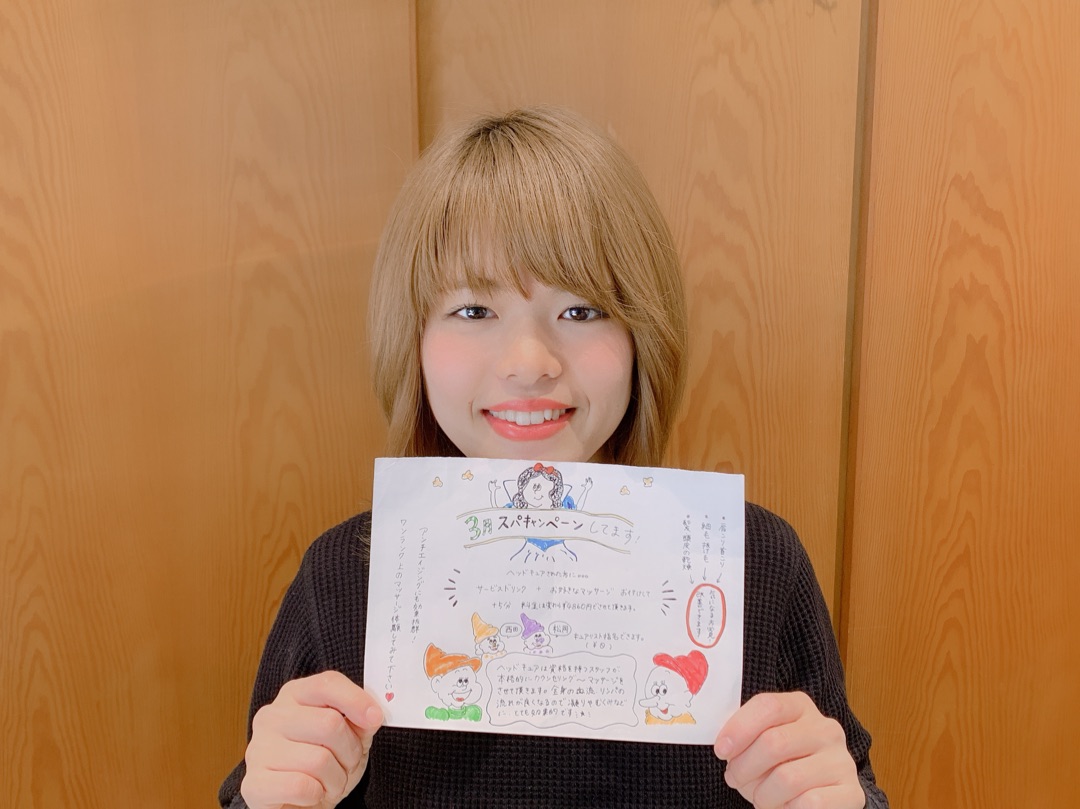 3月 スパキャンペーンしてます!
ヘッドキュアされた方に...
サービスドリンク + お好きなマッサージ お付けして
+5分 料金は変わらず
させて頂きます。
西田
松岡
キュアリスト指名できます。
ヘッドキュアは資格を持つスタッフが
本格的にカウンセリング〜マッサージを
させて頂きます。全身の血流、リンパの
流れが良くなるので凝りやむくみなど
に、とても効果的です
・肩こり首こり
・細毛 抜毛
・髪、頭皮の乾燥
気になるお悩み
改善できます!
アンチエイジングにも効果抜群!
ワンランク上のマッサージ体感してみて下さい♥